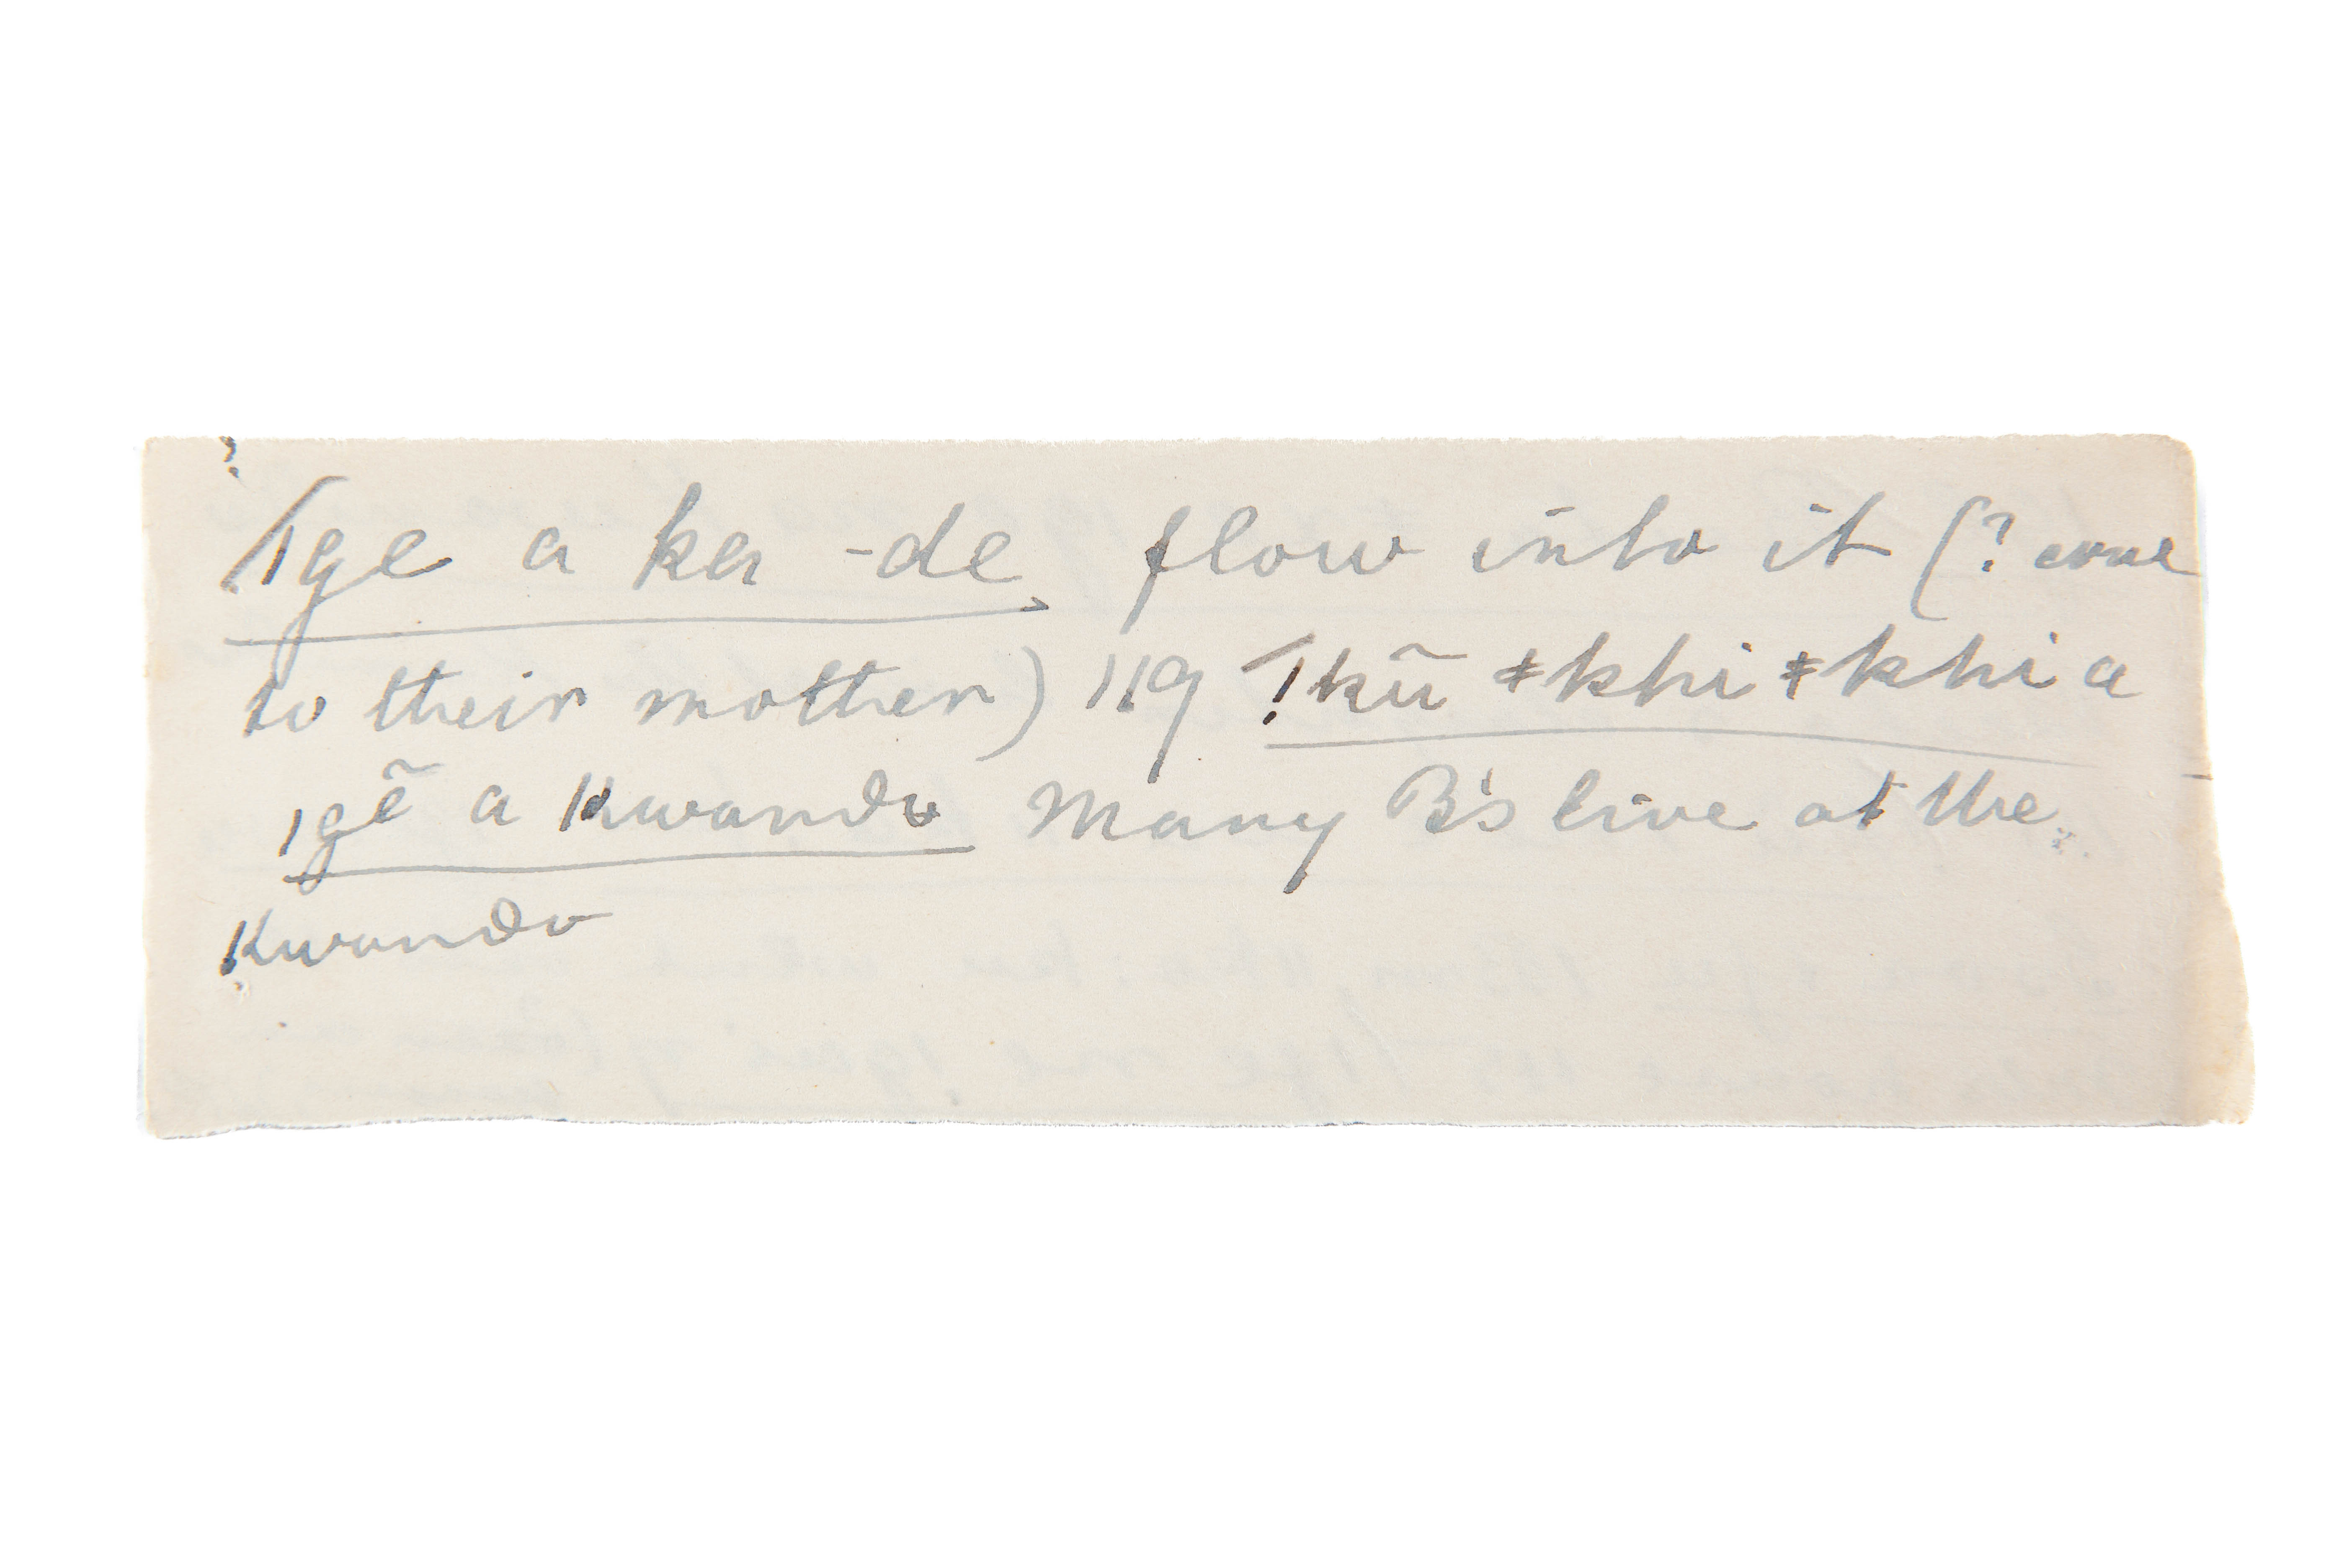 /ge a ka -de flow into it (? come
to their mother) 119 !kũ ǂkhi ǂkhi a
/gẽ a Kwando Many B's live at the
Kwando